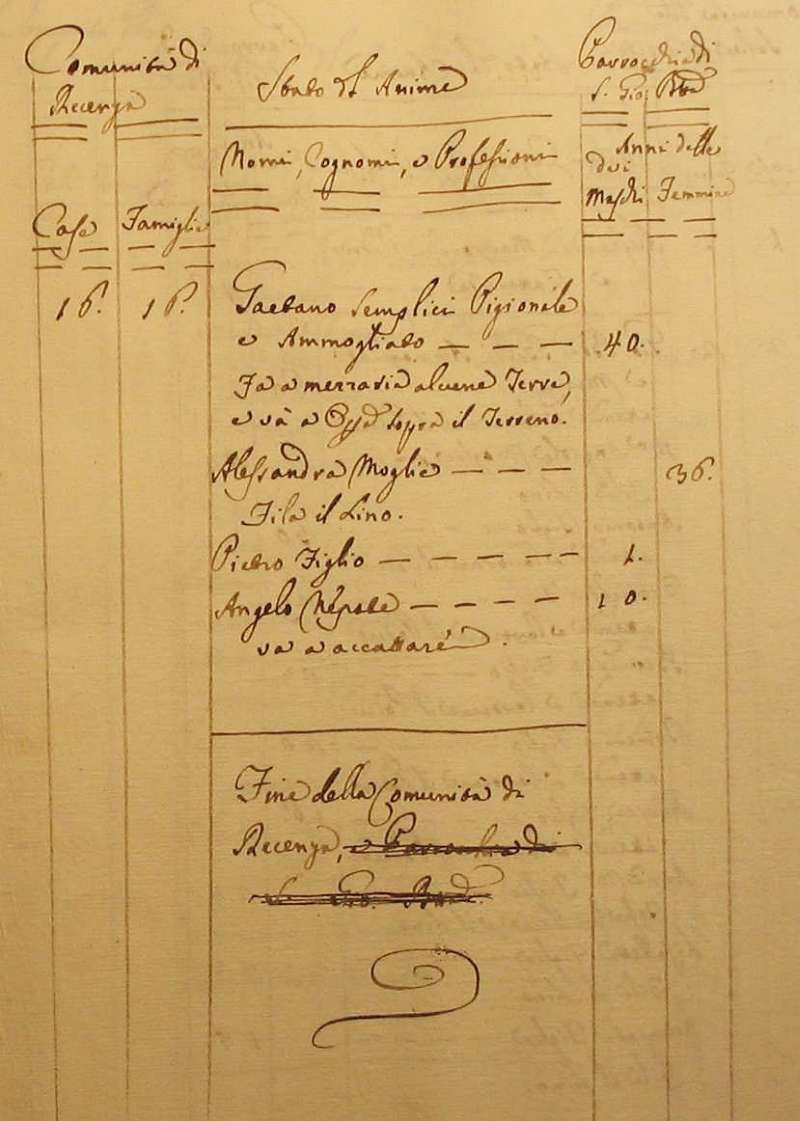 Comunità di
Recenza
Stato d'Anime
Parrocchia di
S. Gio: Btta
Nomi, Cognomi, e Professioni
Anni delle
dei
Maschi Femmine
Case Famiglie
16. 16. Gaetano Semplici Pigionale
e Ammogliato — — — 40.
Fa a mezzadia alcune Terre,
e và a Opª sopra il Terreno.
Alessandra Moglie — — — 36.
Fila il Lino.
Pietro Figlio — — — — — 1.
Angelo Nepote — — — — 10.
và a accattare.
Fine della Comunità di
Recenza, e Parrocchia di
S. Gio. Btta.